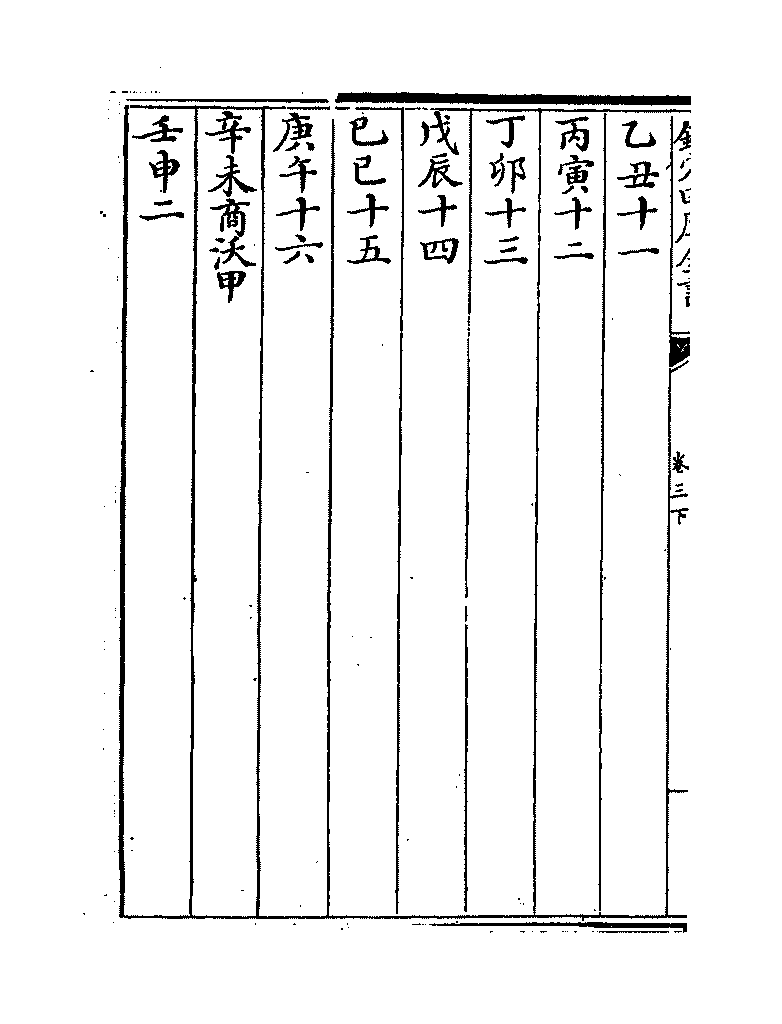 欽定四庫全書
卷三下
乙丑十一
丙寅十二
丁卯十三
戊辰十四
己巳十五
庚午十六
辛未商沃甲
壬申二